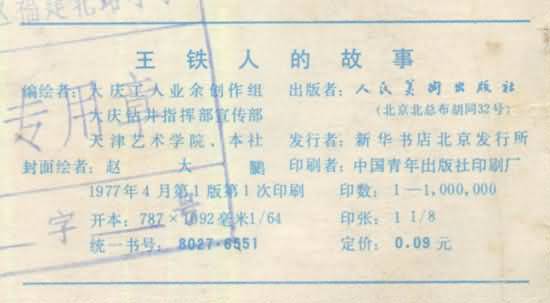 王铁人的故事
编绘者：大庆工人业余创作组
大庆钻井指挥部宣传部
天津艺术学院、本社
封面绘者：赵大鹏
1977年4月第1版第1次印刷
开本：787×1092毫米1/64
统一书号：8027·6551
出版者：人民美术出版社
(北京北总布胡同32号)
发行者：新华书店北京发行所
印刷者：中国青年出版社印刷厂
印数：1—1,000,000
印张：1 1/8
定价：0.09元
专用章
字